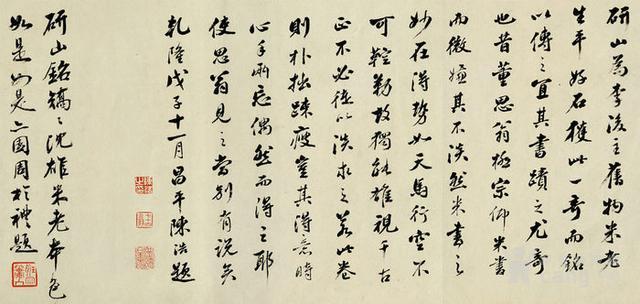 研山為李後主舊物米老
生平好石獲此一奇而銘
以傳之宜其書蹟之尤奇
也昔董思翁極宗仰米書
而微嫌其不淡然米書之
妙在得勢如天馬行空不
可鞚勒故獨能雄視千古
正不必徒以淡求之若此卷
則朴拙踈瘦豈其得意時
心手兩忘偶然而得之耶
使思翁見之當別有説矣
乾隆戊子十一月昌平陳浩題
研山銘鎬々沈雄米老本色
如是如是亦園周於禮題